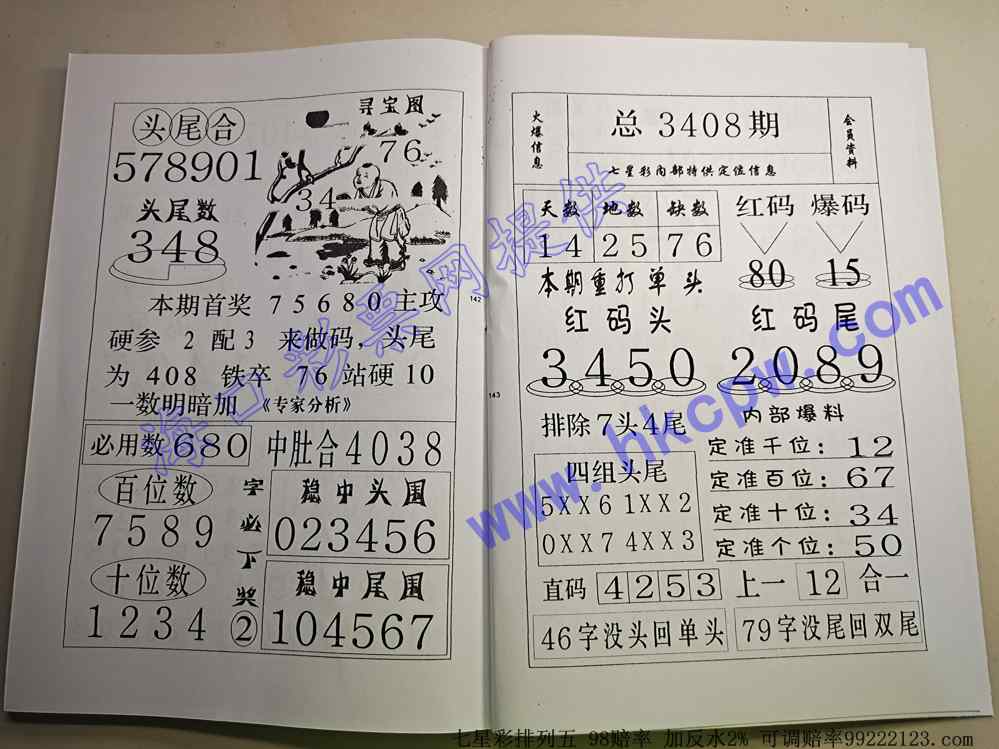 头尾合
578901
寻宝图
76
34
头尾数
348
本期首奖 75680主攻
硬参 2 配3 来做码，头尾
为 408 铁卒 76站硬10
一数明暗加 《专家分析》
必用数 680
中肚合4038
百位数
7589
十位数
1234
字必下奖②
稳中头围
023456
稳中尾围
104567
142
143
火爆信息
总 3408期
会员资料
七星彩内部特供定位信息
天数 地数 缺数
14 25 76
红码 爆码
80 15
本期重打单头
红码头
3450
红码尾
2089
排除7头4尾
内部爆料
四组头尾
5XX6 1XX2
0XX7 4XX3
定准千位：12
定准百位：67
定准十位：34
定准个位：50
直码 4253 上一 12 合一
46字没头回单头
79字没尾回双尾
海口彩票网提供
www.hkcpw.com
七星彩排列五 98赔率 加反水2% 可调赔率99222123.com